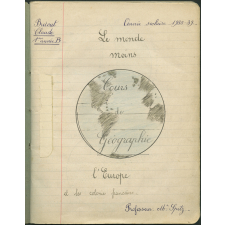 Année scolaire 1938-39
Claude
Le monde
moins
Cours
de
Géographie
l'Europe
et des colonies françaises
Professeur Mlle